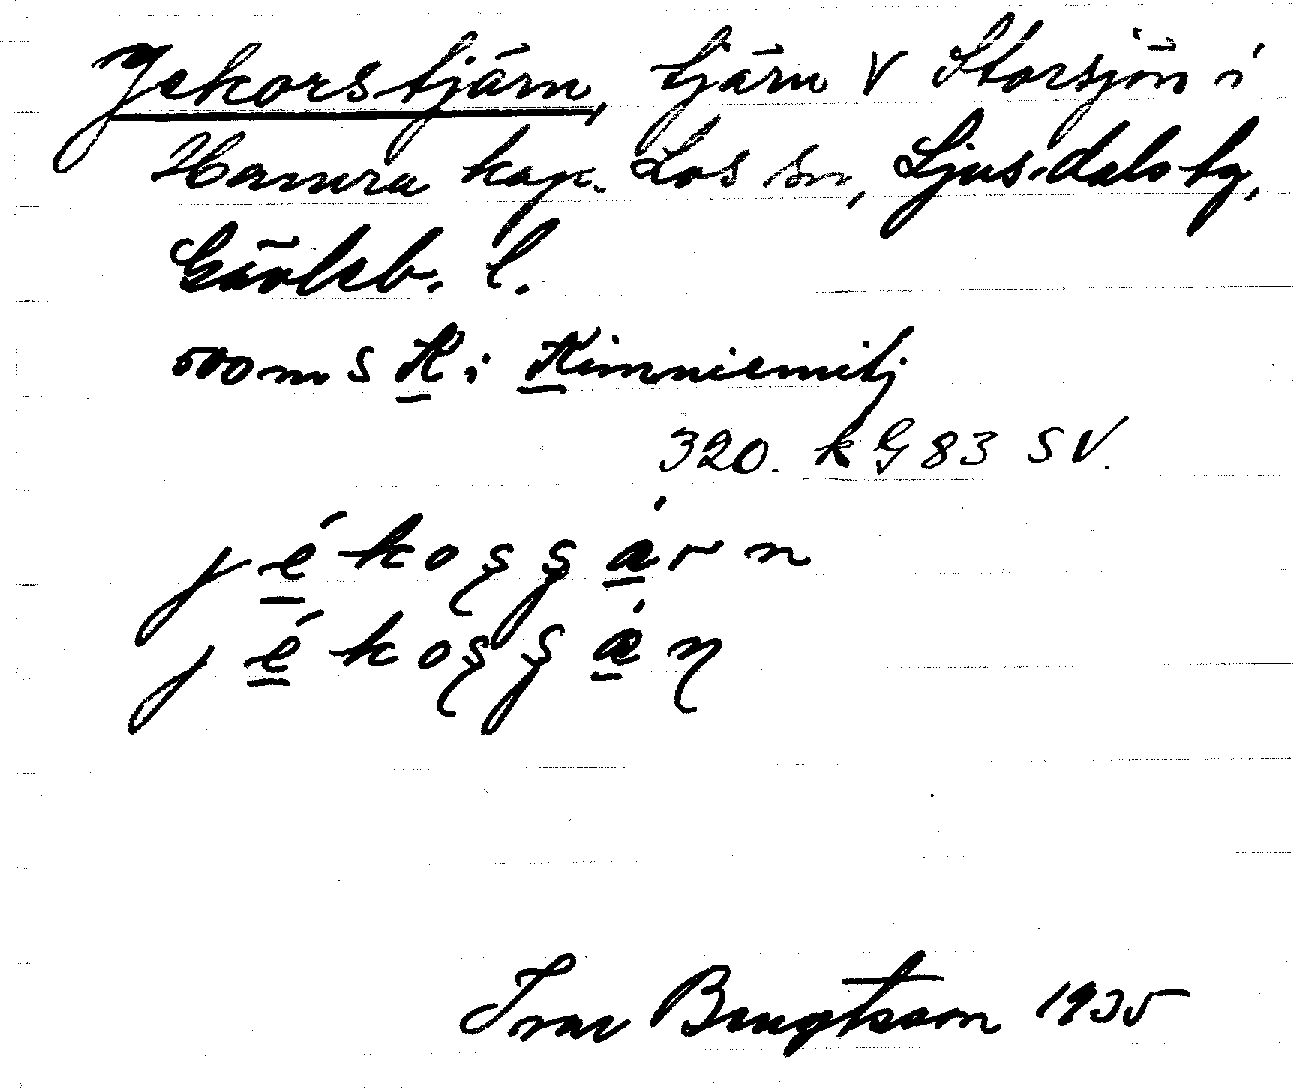 Jekorstjärn, tjärn V Storsjön i
Hamra kap. Los sn, Ljusdals tg,
Gävleb. l.
500 m S K i Kimniemitj
320. k G 83 SV.
jékoşşárn
jékoşşáɳ
Ivar Bengtsson 1935